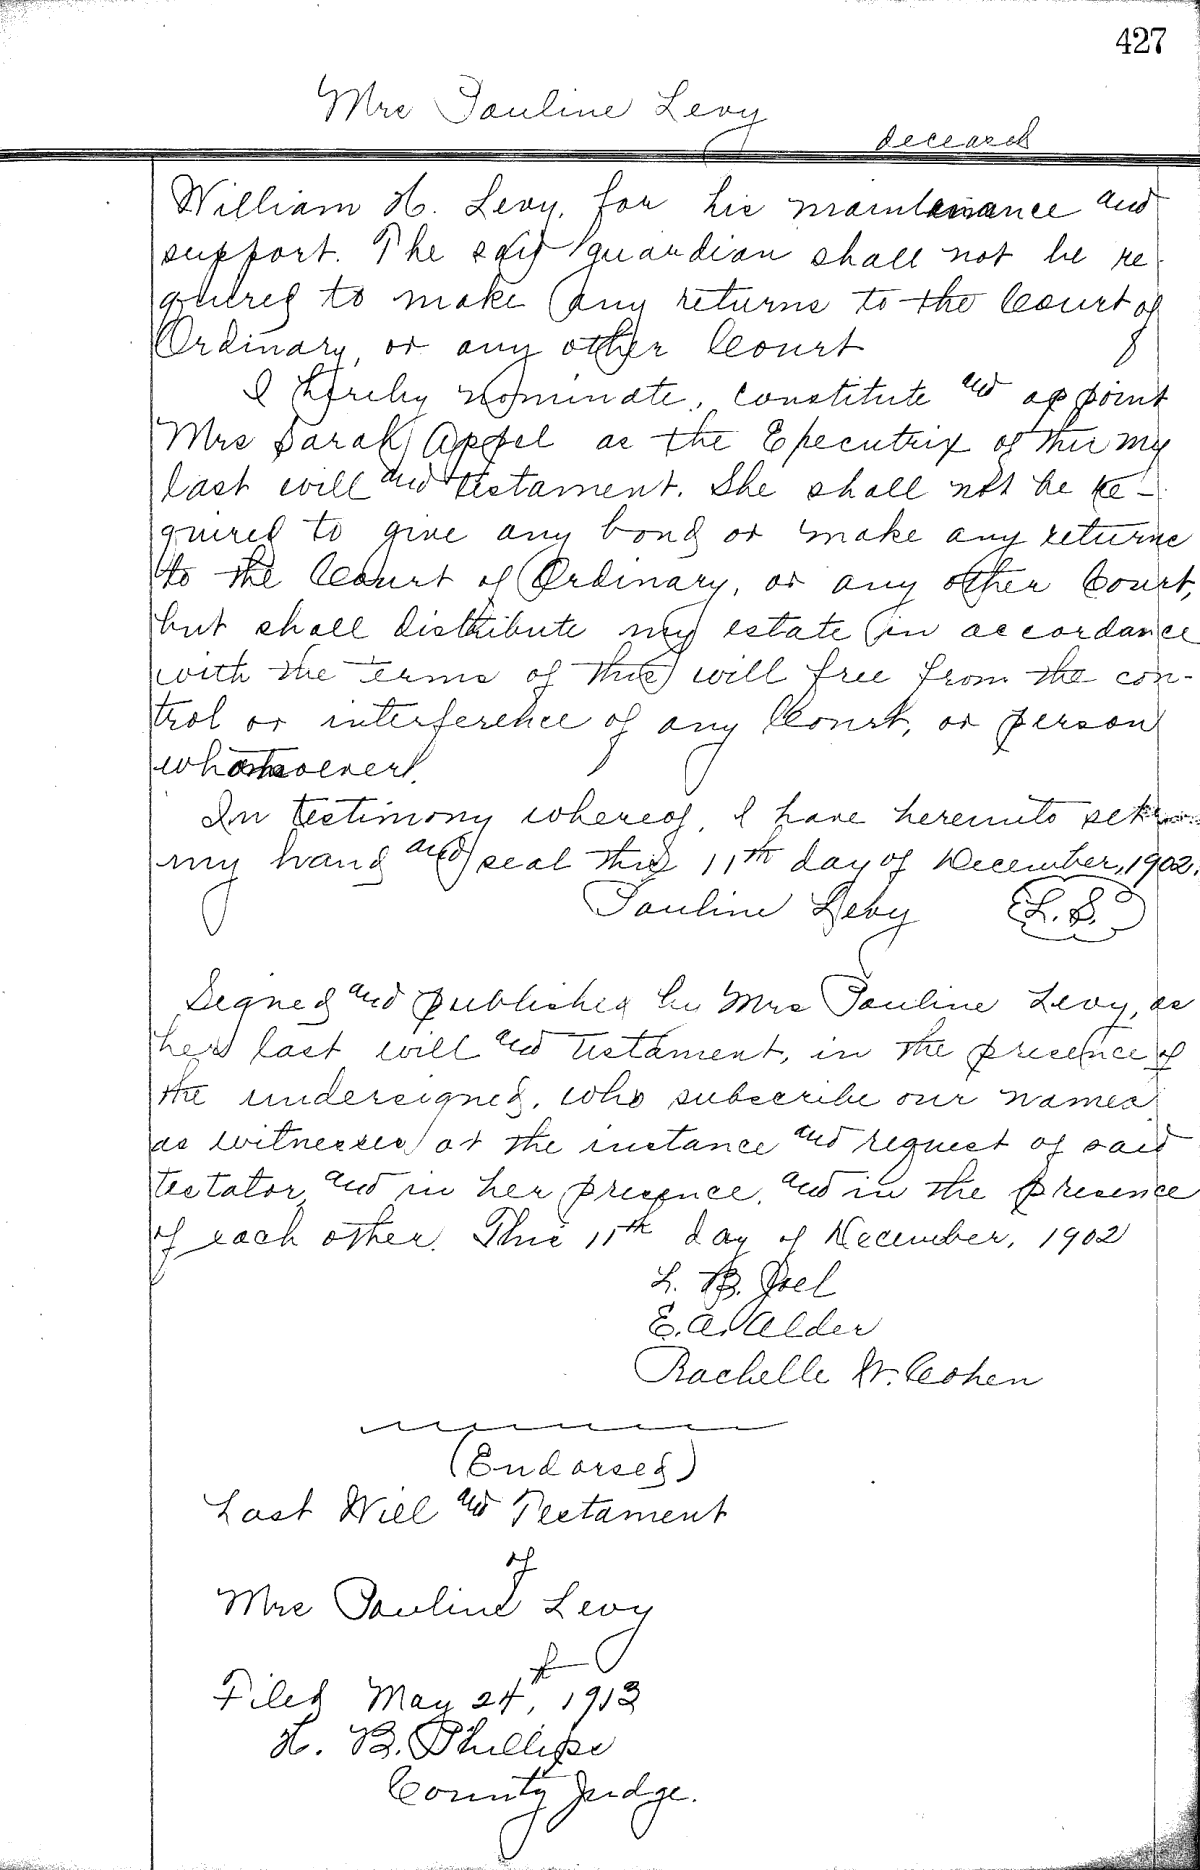 427
Mrs Pauline Levy
deceased
William H. Levy, for his maintenance and
support. The said guardian shall not be re
quired to make any returns to the Court of
Ordinary, or any other Court
I hereby nominate, constitute and appoint
Mrs Sarah Appel as the Executrix of this my
last will and testament. She shall not be re-
quired to give any bond or make any returns
to the Court of Ordinary, or any other Court,
but shall distribute my estate in accordance
with the terms of this will free from the con-
trol or interference of any Court, or person
whomsoever.
In testimony whereof, I have hereunto set
my hand and seal this 11th day of December, 1902.
Pauline Levy (L.S.)
Signed and published by Mrs Pauline Levy, as
her last will and testament, in the presence of
the undersigned, who subscribe our names
as witnesses at the instance and request of said
testator, and in her presence, and in the presence
of each other. This 11th day of December, 1902
L. B. Joel
E. A. Alder
Rachelle W. Cohen
(Endorsed)
Last Will and Testament
of
Mrs Pauline Levy
Filed May 24th, 1913
H. B. Phillips
County Judge.